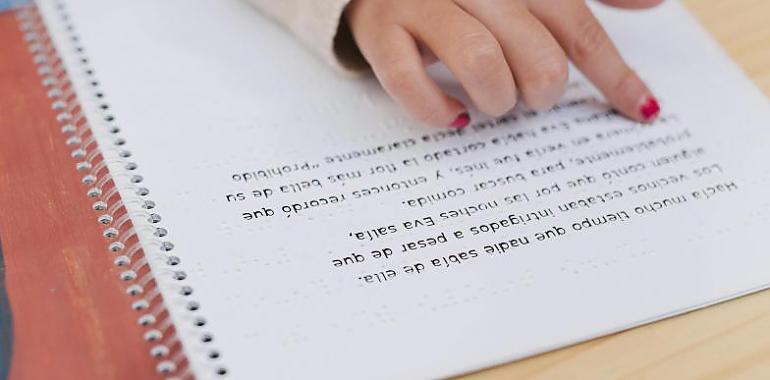 Hacía mucho tiempo que nadie sabía de ella.
Los vecinos estaban intrigados a pesar de que
alguien contó que por las noches Eva salía,
probablemente, para buscar comida.
La primera en verla fue Inés, y entonces recordó que
Eva había cortado la flor más bella de su
decía claramente "Prohibido